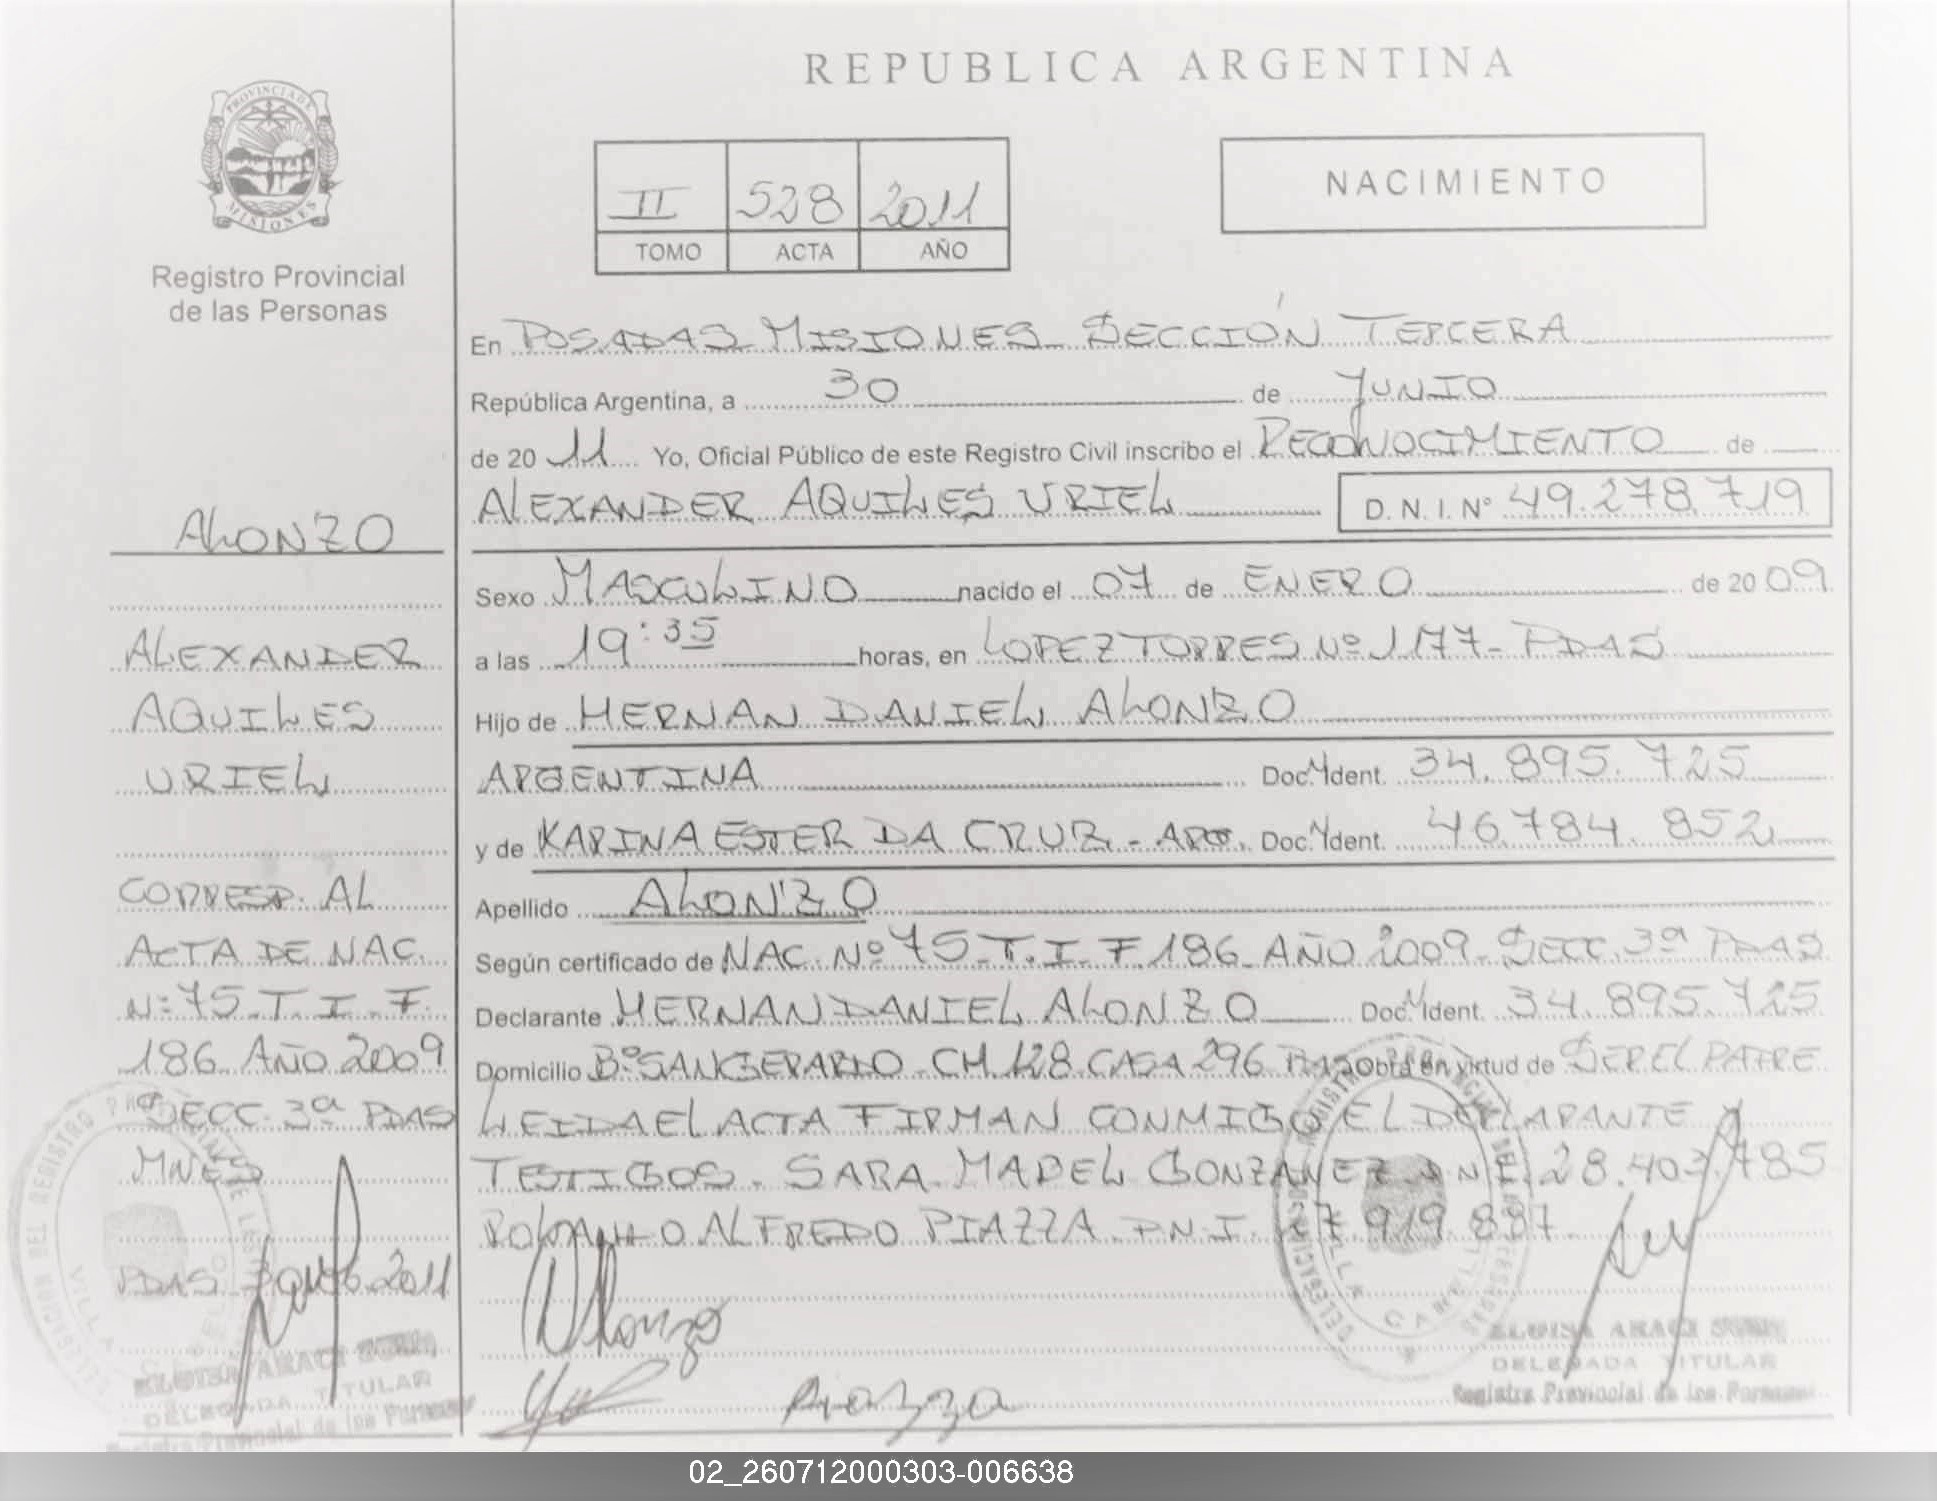 REPUBLICA ARGENTINA
PROVINCIA DE
MISIONES
Registro Provincial
de las Personas
II 528 2011
TOMO ACTA AÑO
NACIMIENTO
En POSADAS MISIONES SECCIÓN TERCERA
República Argentina, a 30 de JUNIO
de 20 11 Yo, Oficial Público de este Registro Civil inscribo el RECONOCIMIENTO de
ALEXANDER AQUILES URIEL D. N. I. Nº 49.278.719
Sexo MASCULINO nacido el 07 de ENERO de 20 09
a las 19:35 horas, en LOPEZ TORRES Nº 1177 - PDAS
Hijo de HERNAN DANIEL ALONZO
ARGENTINA Doc. Ident. 34.895.725
y de KARINA ESTER DA CRUZ - ARG. Doc. Ident. 46.784.852
Apellido ALONZO
Según certificado de NAC. Nº 75 T. I. F 186 AÑO 2009 - SECC. 3ª PDAS
Declarante HERNAN DANIEL ALONZO Doc. Ident. 34.895.725
Domicilio Bº SAN GERARDO - CH 128 CASA 296 obra en virtud de SER EL PADRE
LEIDA EL ACTA FIRMAN CONMIGO EL DECLARANTE Y
TESTIGOS. SARA MABEL GONZALEZ D.N.I. 28.403.785
ROLANDO ALFREDO PIAZZA D.N.I. 27.919.887
Alonzo
Piazza
ALONZO
ALEXANDER
AQUILES
URIEL
CORRESP. AL
ACTA DE NAC.
Nº 75 T. I. F.
186 AÑO 2009
SECC. 3ª PDAS
MNES
PDAS 2011
DELEGACION DEL REGISTRO
VILLA CABELLO
ELOISA ARACI
DELEGADA TITULAR
Registro Provincial de las Personas
DELEGACION
VILLA CABELLO
ELOISA ARACI
DELEGADA TITULAR
Registro Provincial de las Personas
02_260712000303-006638